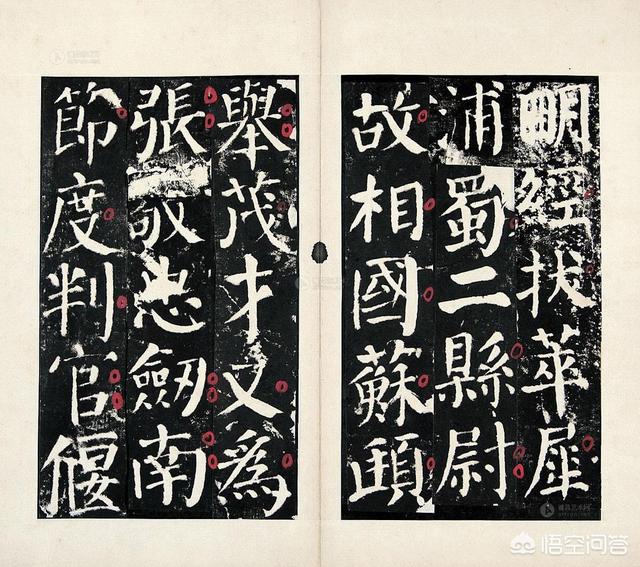 眀經拔萃犀
浦蜀二縣尉
故相國蘇頲
舉茂才又爲
張敬忠劒南
節度判官偃
悟空问答